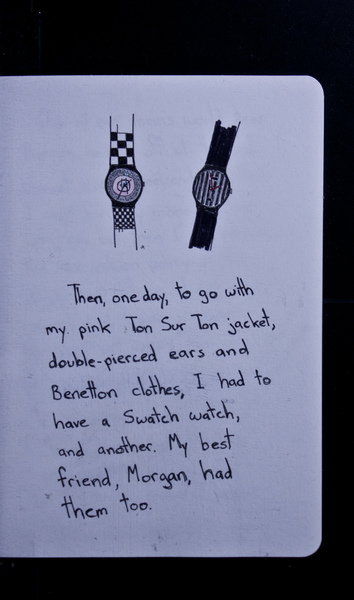 Then, one day, to go with
my pink Ton Sur Ton jacket,
double-pierced ears and
Benetton clothes, I had to
have a Swatch watch,
and another. My best
friend, Morgan, had
them too.